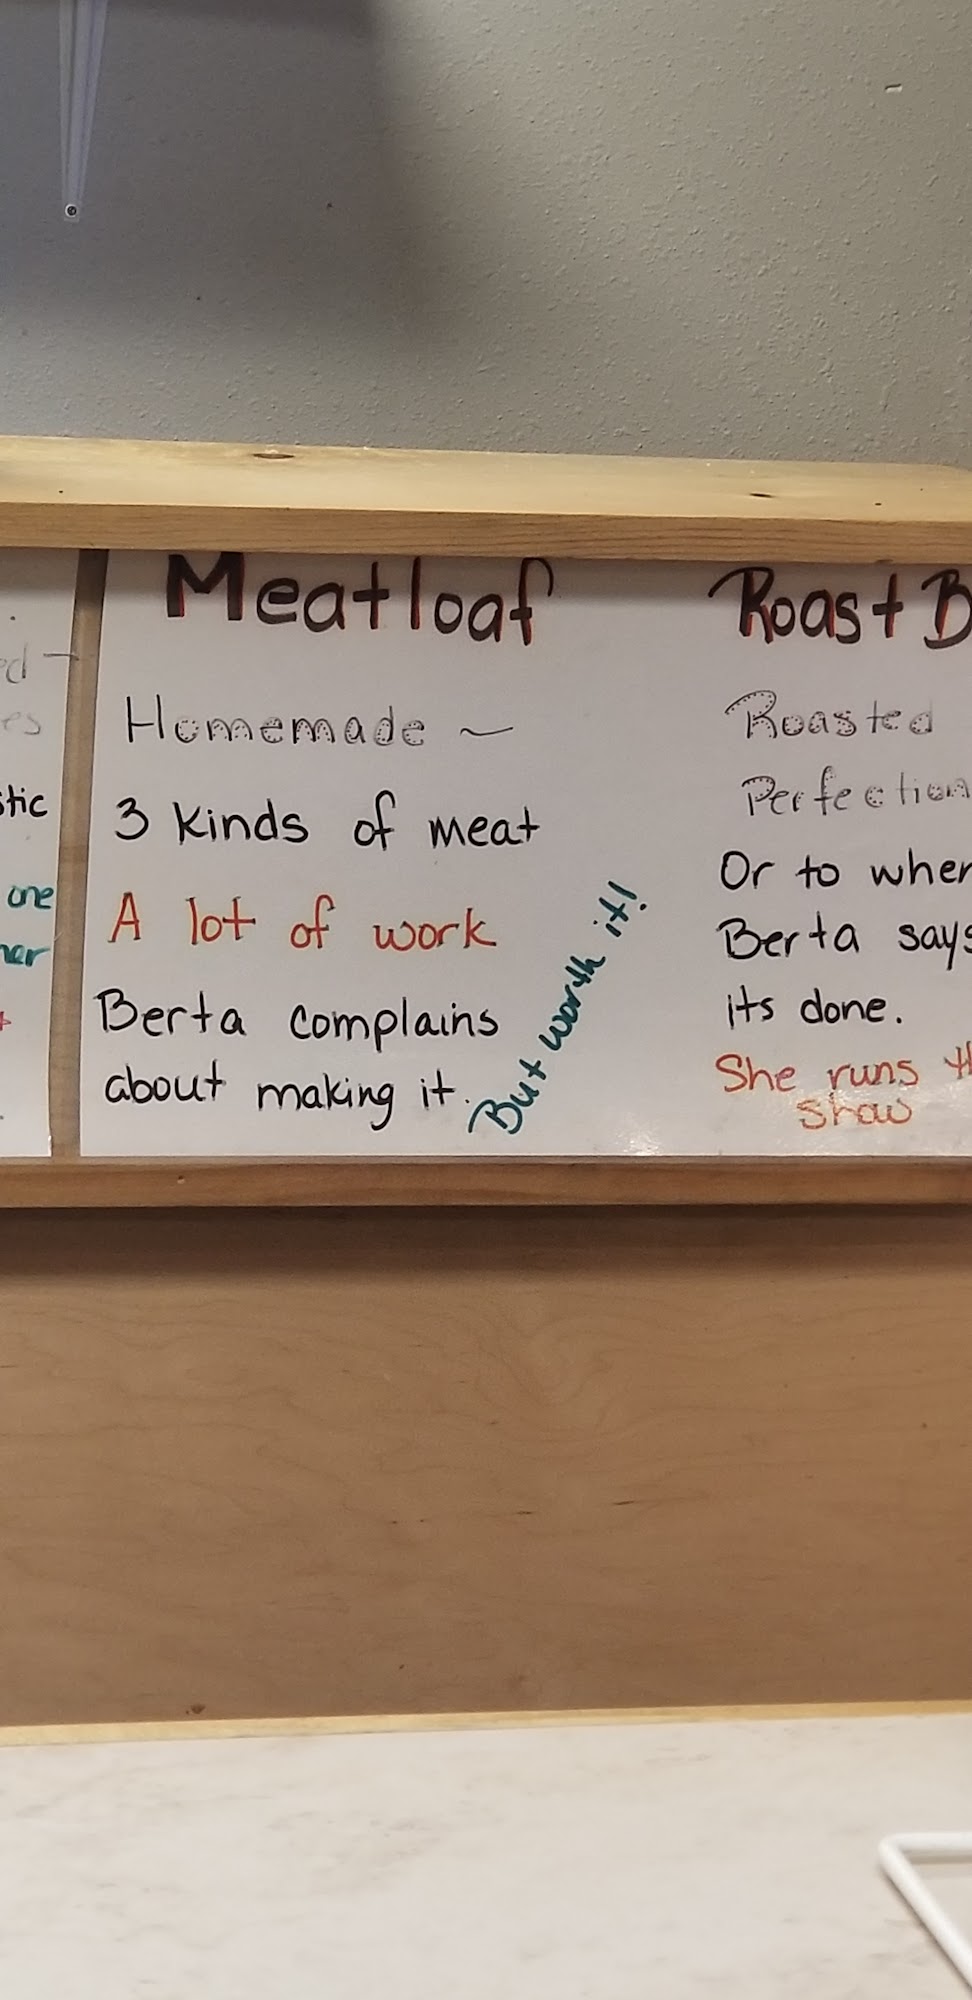 stic
one
Meatloaf
Homemade ~
3 kinds of meat
A lot of work
Berta complains
about making it.
But worth it!
Roast B
Roasted
Perfection
Or to when
Berta says
its done.
She runs th
show